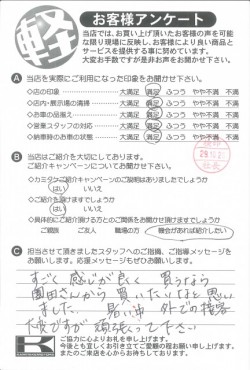 軽 お客様アンケート
当店では、お買い上げ頂いたお客様の声を可能
な限り現場に反映し、お客様により良い商品と
サービスを提供する事に努めています。
大変お手数ですが是非お声をお聞かせ下さい。
A 当店を実際にご利用になった印象をお聞かせ下さい。
◇店の印象 大満足 満足 ふつう やや不満 不満
◇店内・展示場の清掃 大満足 満足 ふつう やや不満 不満
◇お車の品揃え 大満足 満足 ふつう やや不満 不満
◇営業スタッフの対応 大満足 満足 ふつう やや不満 不満
◇納車時のお車の状態 大満足 満足 ふつう やや不満 不満
B 当店はご紹介を大切にしております。
ご紹介キャンペーンについてお聞かせ下さい。
◇カミタケご紹介キャンペーンのご説明はありましたでしょうか
はい いいえ
◇ご紹介をお聞かせ頂けますでしょうか
はい いいえ
◇具体的にご紹介頂ける方とのご関係をお聞かせ下さい
ご親族 ご友人 職場の方 機会があれば紹介したい
C 担当させて頂きましたスタッフへのご指摘、ご指導メッセージを
お願いします。応援メッセージもぜひお願いします。
すごく 感じが良く 買うなら
園田さんから 買いたいなと思い
ました。 暑い中 外での接客
大変ですが 頑張って下さい
K ご協力に心よりお礼を申し上げます。
今後とも宜しくお引き立てご愛顧の程お願い申し上げます。
またのご来店を心からお待ちしております。